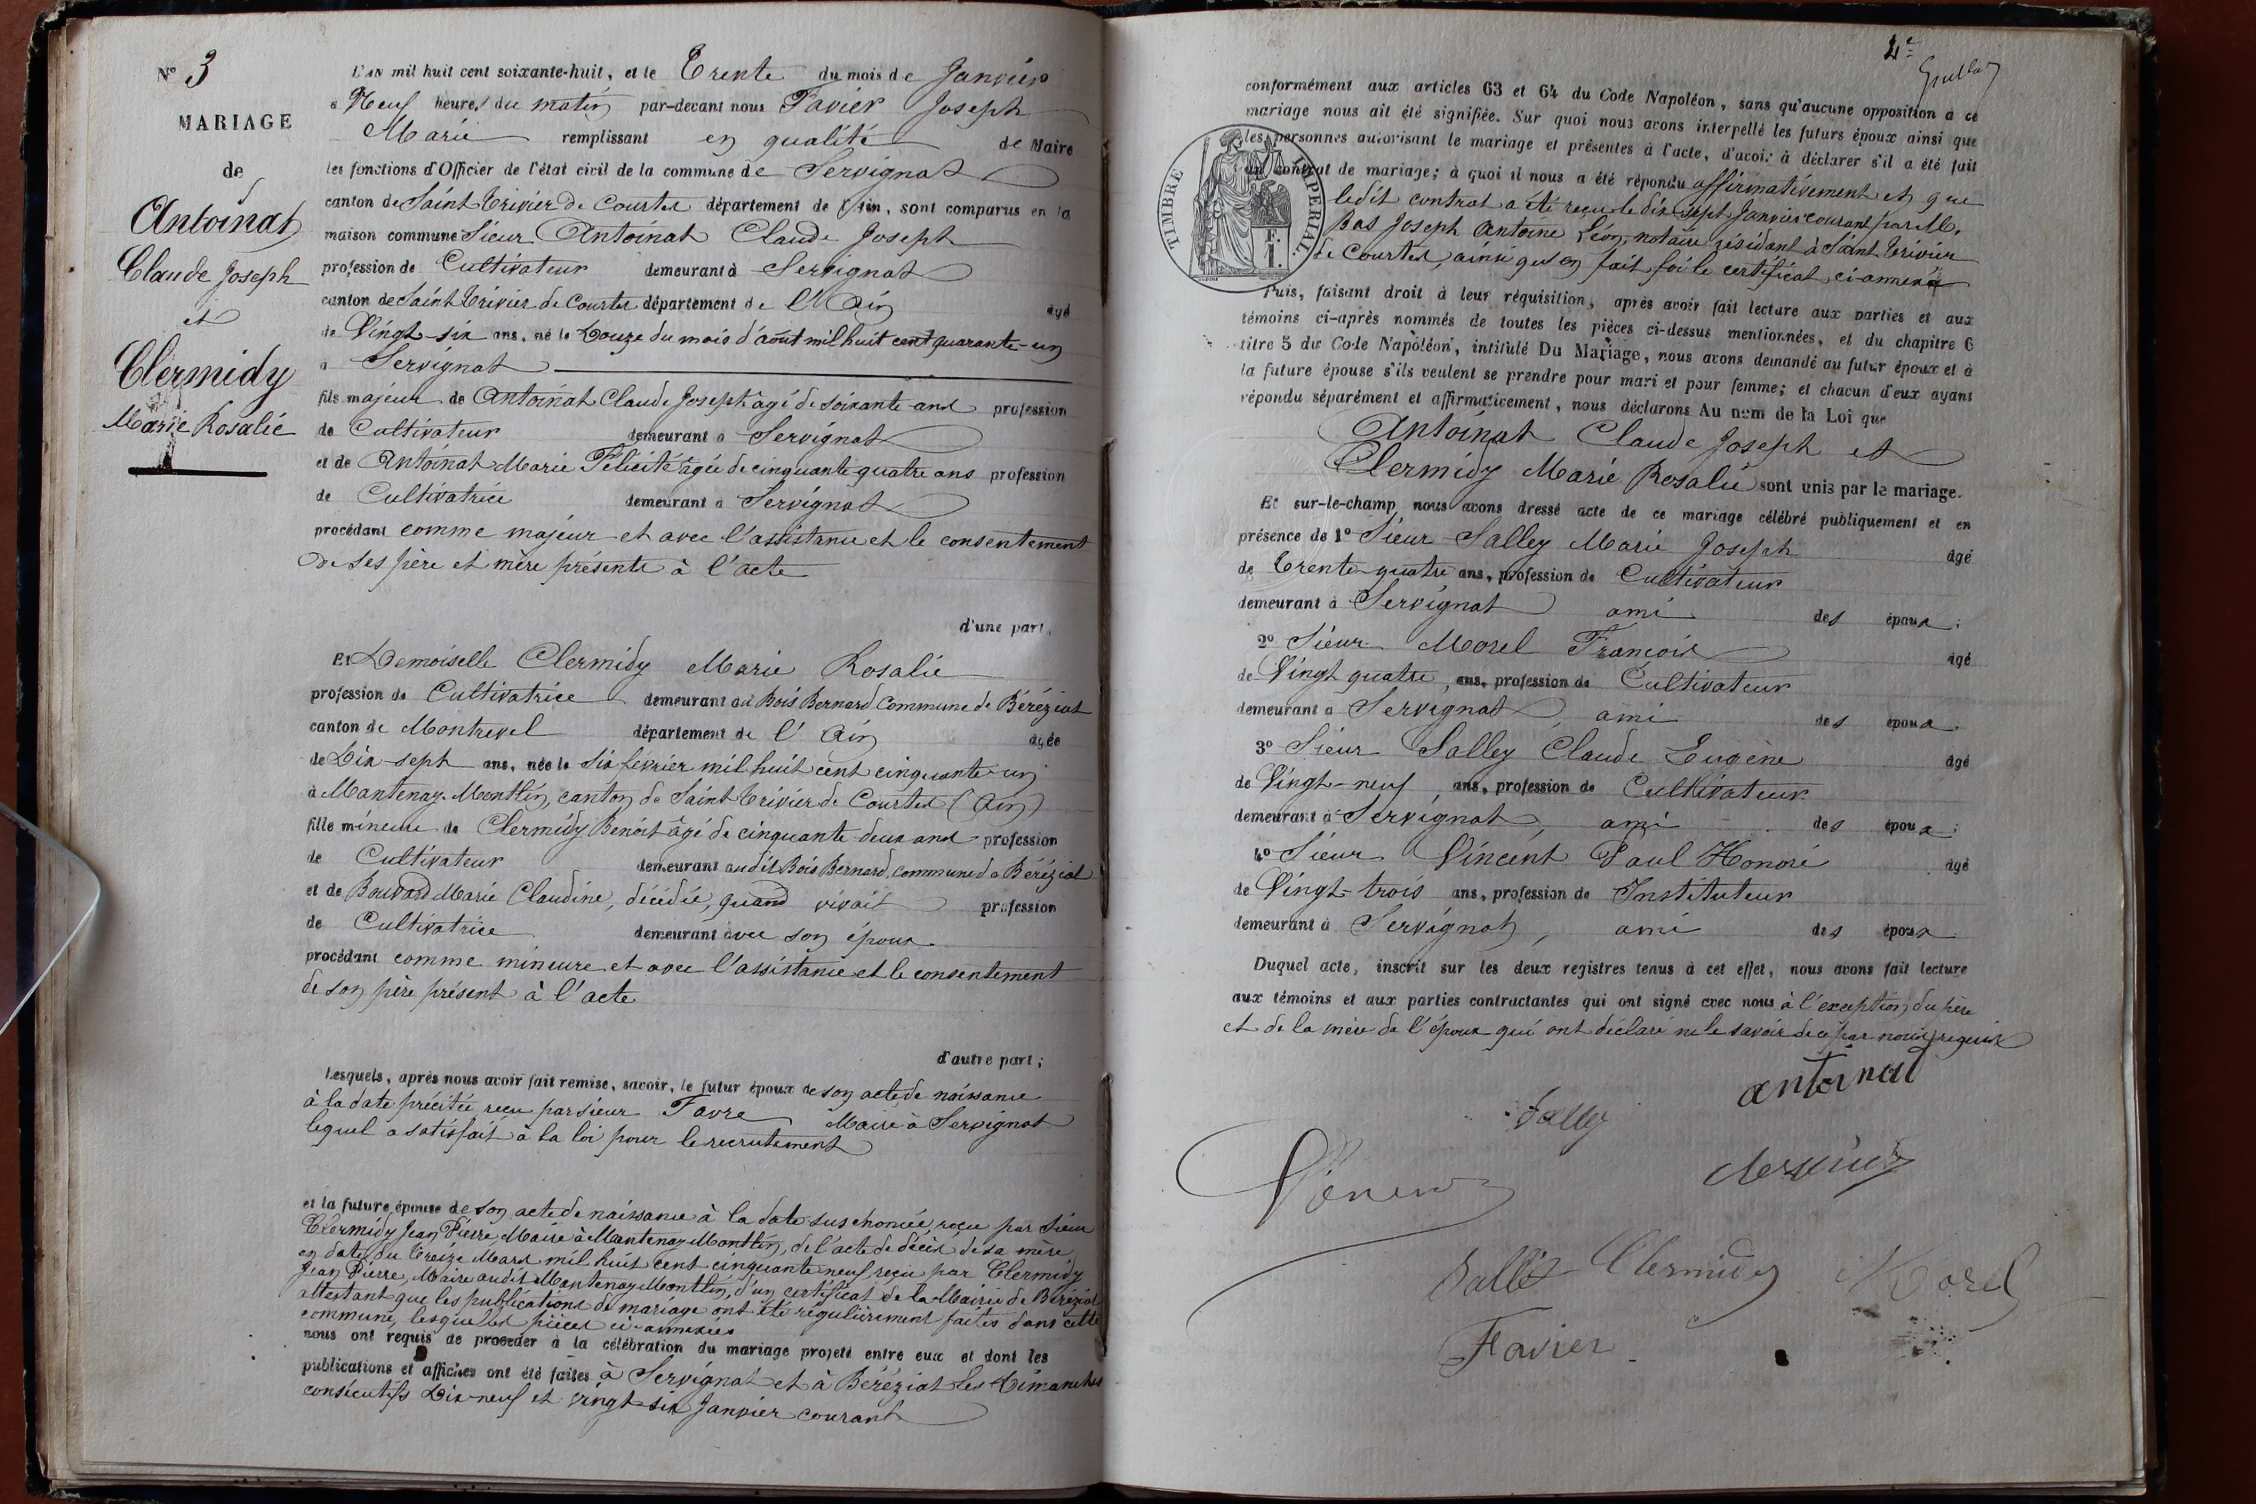 N° 3
MARIAGE
de
Antoinat
Claude Joseph
et
Clermidy
Marie Rosalie
L'AN mil huit cent soixante-huit, et le Trente du mois de Janvier
à Neuf heures du matin par-devant nous Favier Joseph
Marie remplissant en qualité de Maire
les fonctions d'Officier de l'état civil de la commune de Servignat
canton de Saint Trivier de Courtes département de l'Ain, sont comparus en la
maison commune Sieur Antoinat Claude Joseph
profession de Cultivateur demeurant à Servignat
canton de Saint Trivier de Courtes département de l'Ain âgé
de Vingt-six ans, né le Douze du mois d'août mil huit cent quarante-un
à Servignat
fils majeur de Antoinat Claude Joseph âgé de soixante ans profession
de Cultivateur demeurant à Servignat
et de Antoinat Marie Félicité âgée de cinquante quatre ans profession
de Cultivatrice demeurant à Servignat
procédant comme majeur et avec l'assistance et le consentement
de ses père et mère présents à l'acte
d'une part,
Et Demoiselle Clermidy Marie Rosalie
profession de Cultivatrice demeurant au Bois Bernard Commune de Béréziat
canton de Montrevel département de l'Ain âgée
de Dix-sept ans, née le Six Février mil huit cent cinquante-un
à Mantenay-Montlin, canton de Saint Trivier de Courtes (Ain)
fille mineure de Clermidy Benoît âgé de cinquante deux ans profession
de Cultivateur demeurant audit Bois Bernard, commune de Béréziat
et de Bouvard Marie Claudine, décédée, quand vivait profession
de Cultivatrice demeurant avec son époux
procédant comme mineure et avec l'assistance et le consentement
de son père présent à l'acte
d'autre part;
Lesquels, après nous avoir fait remise, savoir, le futur époux de son acte de naissance
à la date précitée reçu par sieur Favre Maire à Servignat
lequel a satisfait à la loi pour le recrutement
et la future épouse de son acte de naissance à la date susénoncée, reçu par Sieur
Clermidy Jean Pierre, Maire à Mantenay-Montlin, de l'acte de décès de sa mère
en date du treize Mars mil huit cent cinquante neuf reçu par Clermidy
Jean Pierre, Maire audit Mantenay-Montlin, d'un certificat de la Mairie de Béréziat
attestant que les publications de mariage ont été régulièrement faites dans cette
commune, lesquelles pièces ci-annexées
nous ont requis de procéder à la célébration du mariage projeté entre eux et dont les
publications et affiches ont été faites à Servignat et à Béréziat les Dimanches
consécutifs Dix-neuf et vingt-six Janvier courant
4e
conformément aux articles 63 et 64 du Code Napoléon, sans qu'aucune opposition à ce
mariage nous ait été signifiée. Sur quoi nous avons interpellé les futurs époux ainsi que
les personnes autorisant le mariage et présentes à l'acte, d'avoir à déclarer s'il a été fait
un contrat de mariage; à quoi il nous a été répondu affirmativement et que
TIMBRE IMPERIAL.
ledit contrat a été reçu le dix-sept Janvier courant par M.
Bas Joseph Antoine Léon, notaire résidant à Saint Trivier
de Courtes, ainsi qu'en fait foi le certificat ci-annexé
Puis, faisant droit à leur réquisition, après avoir fait lecture aux parties et aux
témoins ci-après nommés de toutes les pièces ci-dessus mentionnées, et du chapitre 6
titre 5 du Code Napoléon, intitulé Du Mariage, nous avons demandé au futur époux et à
la future épouse s'ils veulent se prendre pour mari et pour femme; et chacun d'eux ayant
répondu séparément et affirmativement, nous déclarons Au nom de la Loi que
Antoinat Claude Joseph et
Clermidy Marie Rosalie sont unis par le mariage.
Et sur-le-champ nous avons dressé acte de ce mariage célébré publiquement et en
présence de 1° Sieur Salley Marie Joseph âgé
de Trente-quatre ans, profession de Cultivateur
demeurant à Servignat ami des époux;
2° Sieur Morel François âgé
de Vingt quatre, ans, profession de Cultivateur
demeurant à Servignat, ami des époux
3° Sieur Salley Claude Eugène âgé
de Vingt-neuf, ans, profession de Cultivateur
demeurant à Servignat, ami des époux;
4° Sieur Vincent Paul Honoré âgé
de Vingt-trois ans, profession de Instituteur
demeurant à Servignat, ami des époux
Duquel acte, inscrit sur les deux registres tenus à cet effet, nous avons fait lecture
aux témoins et aux parties contractantes qui ont signé avec nous à l'exception du père
et de la mère de l'époux qui ont déclaré ne le savoir de ce par nous requis
antoinat
Sally
Vincent
clermidy
Salley Clermidy Morel
Favier